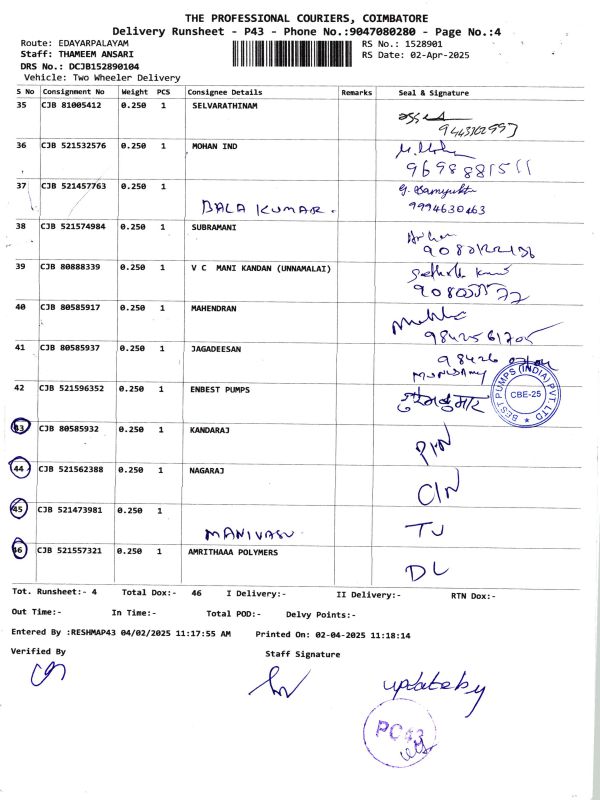 THE PROFESSIONAL COURIERS, COIMBATORE
Delivery Runsheet - P43 - Phone No.:9047080280 - Page No.:4
Route: EDAYARPALAYAM RS No.: 1528901
Staff: THAMEEM ANSARI RS Date: 02-Apr-2025
DRS No.: DCJB152890104
Vehicle: Two Wheeler Delivery
S No Consignment No Weight PCS Consignee Details Remarks Seal & Signature
35 CJB 81005412 0.250 1 SELVARATHINAM
9443302993
36 CJB 521532576 0.250 1 MOHAN IND
9698881511
37 CJB 521457763 0.250 1
BALA KUMAR. 9994630463
38 CJB 521574984 0.250 1 SUBRAMANI
39 CJB 80888339 0.250 1 V C MANI KANDAN (UNNAMALAI)
40 CJB 80585917 0.250 1 MAHENDRAN
9842561705
41 CJB 80585937 0.250 1 JAGADEESAN
98426
42 CJB 521596352 0.250 1 ENBEST PUMPS
BEST PUMPS (INDIA) PVT. LTD
CBE-25
43 CJB 80585932 0.250 1 KANDARAJ
44 CJB 521562388 0.250 1 NAGARAJ CIN
45 CJB 521473981 0.250 1
MANIVASU TJ
46 CJB 521557321 0.250 1 AMRITHAAA POLYMERS DL
Tot. Runsheet:- 4 Total Dox:- 46 I Delivery:- II Delivery:- RTN Dox:-
Out Time:- In Time:- Total POD:- Delvy Points:-
Entered By :RESHMAP43 04/02/2025 11:17:55 AM Printed On: 02-04-2025 11:18:14
Verified By Staff Signature
update by
PC43